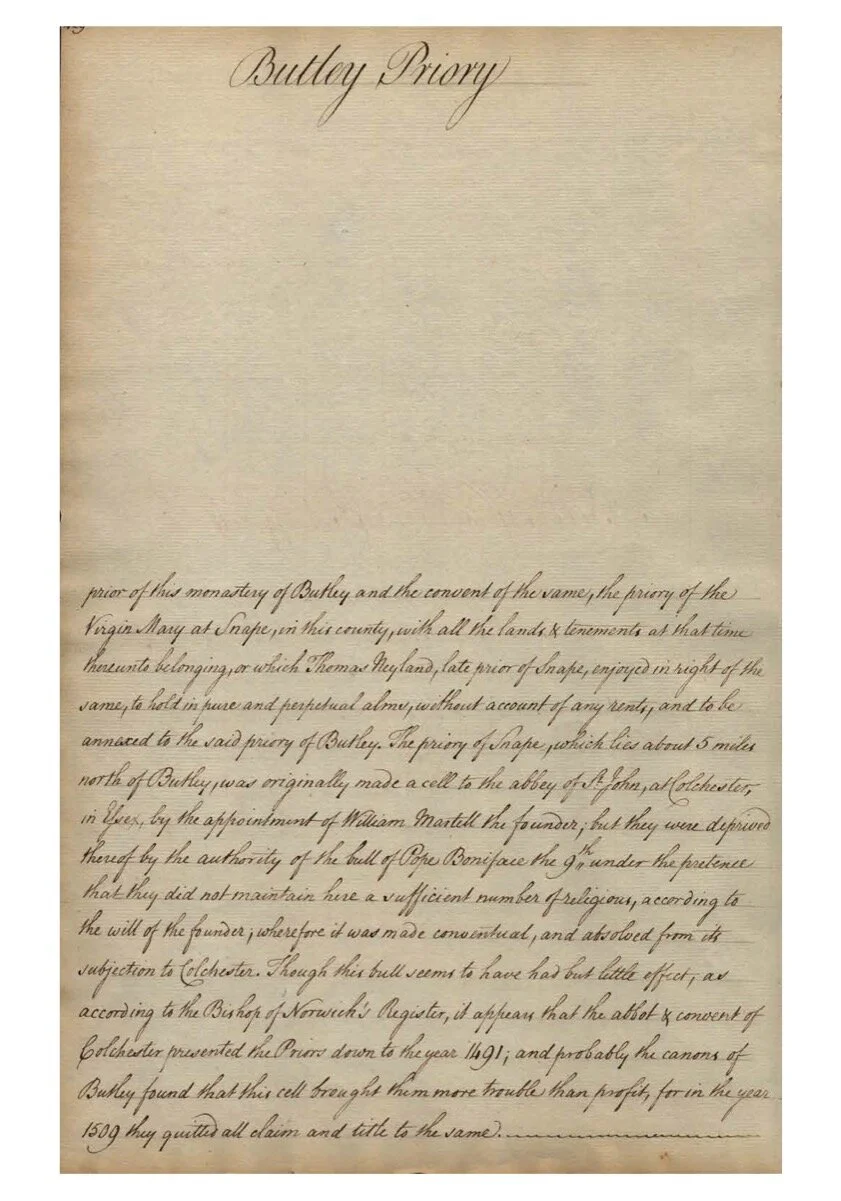 Butley Priory
prior of this monastery of Butley and the convent of the same, the priory of the
Virgin Mary at Snape, in this county, with all the lands & tenements at that time
thereunto belonging, or which Thomas Neyland, late prior of Snape, enjoyed in right of the
same, to hold in pure and perpetual alms, without account of any rents, and to be
annexed to the said priory of Butley. The priory of Snape, which lies about 5 miles
north of Butley, was originally made a cell to the abbey of St. John, at Colchester,
in Essex, by the appointment of William Martell the founder; but they were deprived
thereof by the authority of the bull of Pope Boniface the 9th under the pretence
that they did not maintain here a sufficient number of religious, according to
the will of the founder; wherefore it was made conventual, and absolved from its
subjection to Colchester. Though this bull seems to have had but little effect, as
according to the Bishop of Norwich's Register, it appears that the abbot & convent of
Colchester presented the Priors down to the year 1491; and probably the canons of
Butley found that this cell brought them more trouble than profit, for in the year
1509 they quitted all claim and title to the same.